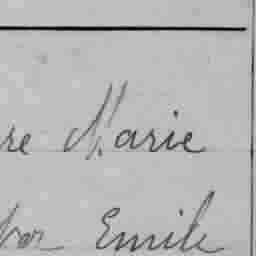 re Marie
Emile